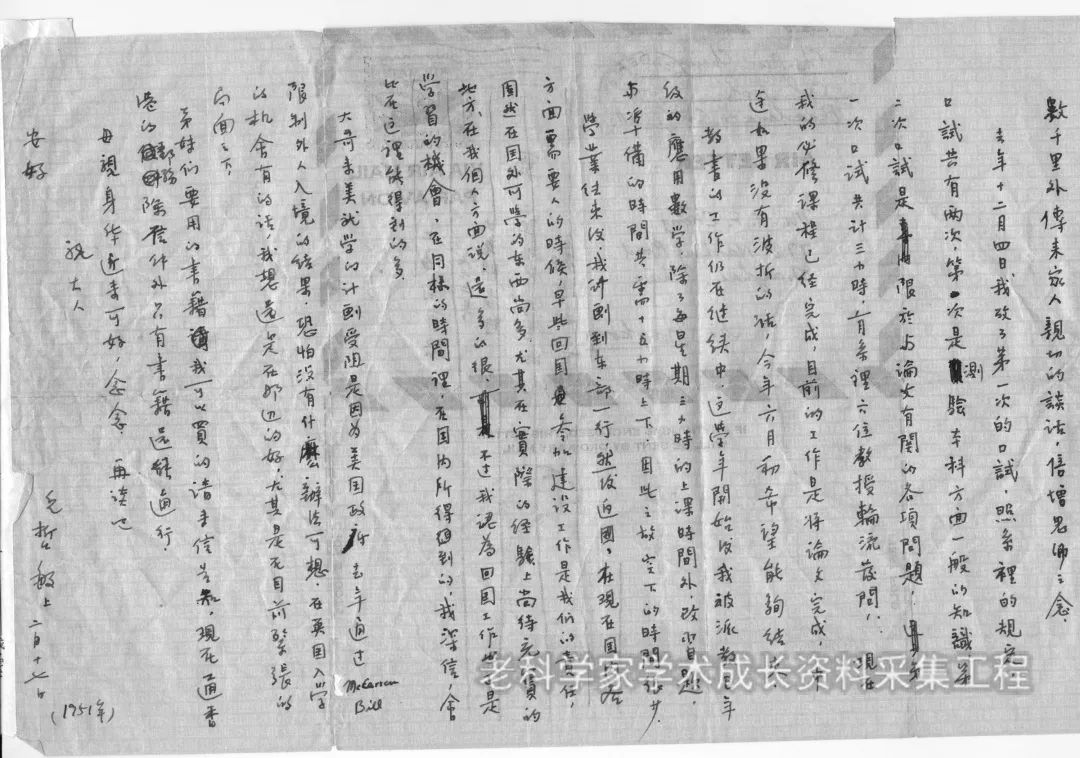 數千里外傳來家人親切的談話，倍增思鄉之念。
去年十二月四日我攷了第一次的口試，照系裡的規定
口試共有两次，第一次是測驗本科方面一般的知識，第
二次口試是限於与論文有関的各項問題，
一次口試共計三小時，由系裡六位教授輪流發問，現在
我的必修課程已经完成，目前的工作是將論文完成，
途如果没有波折的话，今年六月初希望能夠结
教書的工作仍在继续中，这學年開始後我被派教四年
级的應用數学，除了每星期三小時的上课時間外，改習題，
与準备的時間共需十五小時上下因此之故空下的時間很少
學業结束後，我计劃到东部一行然後返國，在現在国内各
方面需要人的時候，早些回国参加建设工作是我们的責任，
固然在国外可学的东西尚多，尤其在實際的经驗上尚待充實的
地方，在我個人方面说，还多的很，不过我認為回国工作也是
學習的機會，在同樣的時間裡，在国内所得到的，我深信，會
比在这裡能得到的多
大哥来美就学的计劃受阻是因为美国政府去年通过 McCarran Bill
限制外人入境的结果，恐怕没有什麼辦法可想，在英国入学
的机会有的话，我想还是在那边的好，尤其是在目前緊張的
局面之下，
弟妹们要用的書籍我可以買的請来信告知，現在通香
港的郵務除信件外只有書籍还能通行，
母親身体近来可好，念念，再谈 祝
大人
安好
毛哲敏上 二月十七日
(1951年)
老科学家学术成长资料采集工程